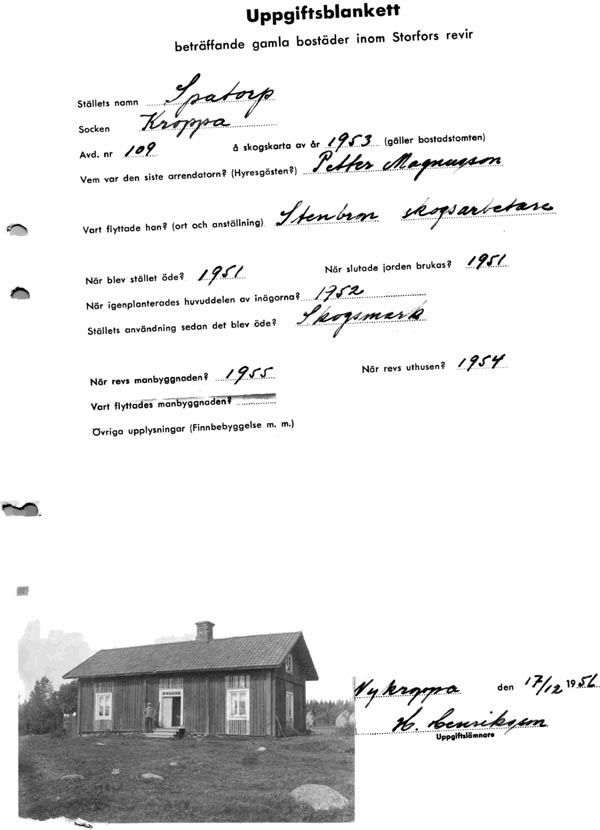 Uppgiftsblankett
beträffande gamla bostäder inom Storfors revir
Ställets namn Spatorp
Socken Kroppa
Avd. nr 109 å skogskarta av år 1953 (gäller bostadstomten)
Vem var den siste arrendatorn? (Hyresgästen?) Petter Magnuson
Vart flyttade han? (ort och anställning) Stenbron skogsarbetare
När blev stället öde? 1951 När slutade jorden brukas? 1951
När igenplanterades huvuddelen av inägorna? 1952
Ställets användning sedan det blev öde? Skogsmark
När revs manbyggnaden? 1955 När revs uthusen? 1954
Vart flyttades manbyggnaden?
Övriga upplysningar (Finnbebyggelse m. m.)
Nykroppa den 17/12 1956
H. Henrikson
Uppgiftslämnare